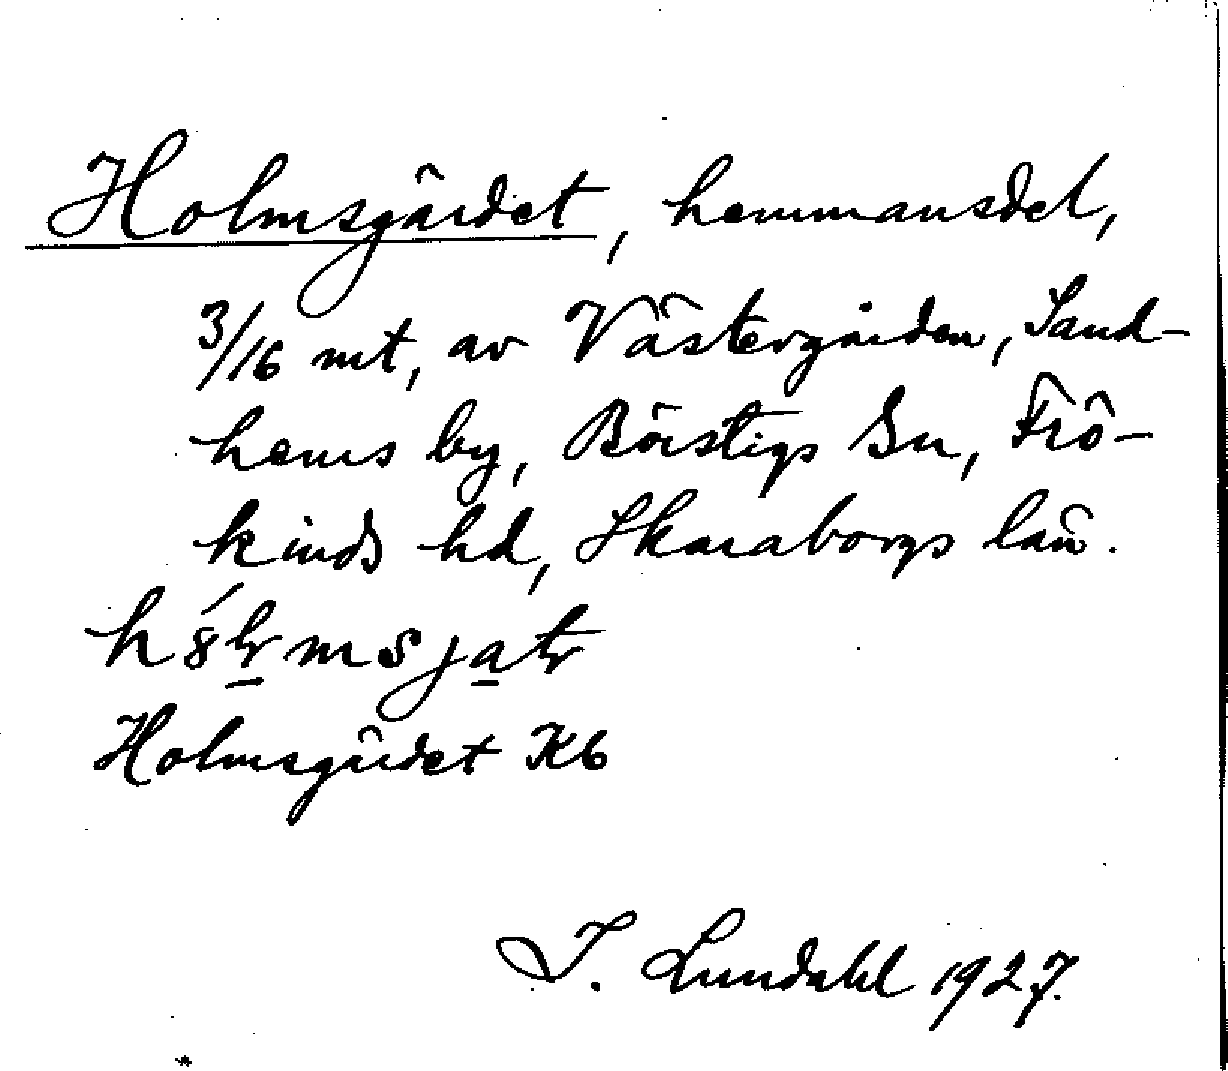 Holmsgärdet, hemmansdel,
3/16 mt, av Västergården, Sand-
hems by, Börstigs sn, Frö-
kinds hd, Skaraborgs län.
Holmsgärdet Kb
I. Lundahl 1927.